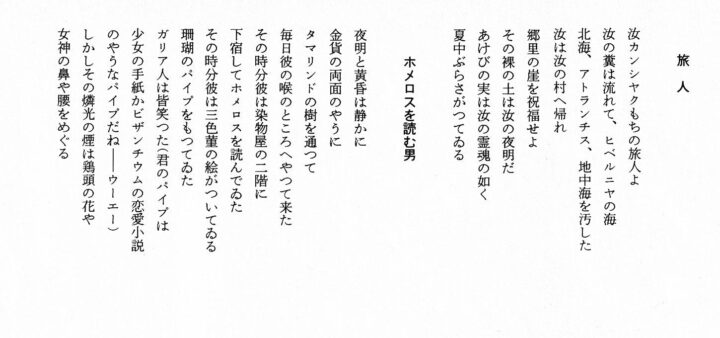 旅人
汝カンシヤクもちの旅人よ
汝の糞は流れて、ヒベルニヤの海
北海、アトランチス、地中海を汚した
汝は汝の村へ帰れ
郷里の崖を祝福せよ
その裸の土は汝の夜明だ
あけびの実は汝の霊魂の如く
夏中ぶらさがつてゐる
ホメロスを読む男
夜明と黄昏は静かに
金貨の両面のやうに
タマリンドの樹を通つて
毎日彼の喉のところへやつて来た
その時分彼は染物屋の二階に
下宿してホメロスを読んでゐた
その時分彼は三色菫の絵がついてゐる
珊瑚のパイプをもつてゐた
ガリア人は皆笑つた（君のパイプは
少女の手紙かビザンチウムの恋愛小説
のやうなパイプだね――ウーエー）
しかしその燐光の煙は鶏頭の花や
女神の鼻や腰をめぐる